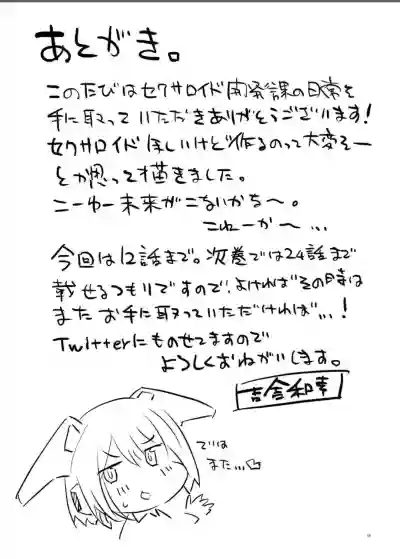 あとがき。
このたびはセクサロイド開発課の日常を
手に取っていただきありがとうございます!
セクサロイドほしいけど作るのって大変そー
とか思って描きました。
こーゆー未来がこないかなぁ〜。
こねーかー…
今回は12話まで。次巻では24話まで
載せるつもりですので、よければその時は
またお手に取っていただければ…!
Twitterにものせてますので
よろしくおねがいします。
吉舎和幸
ではまた…